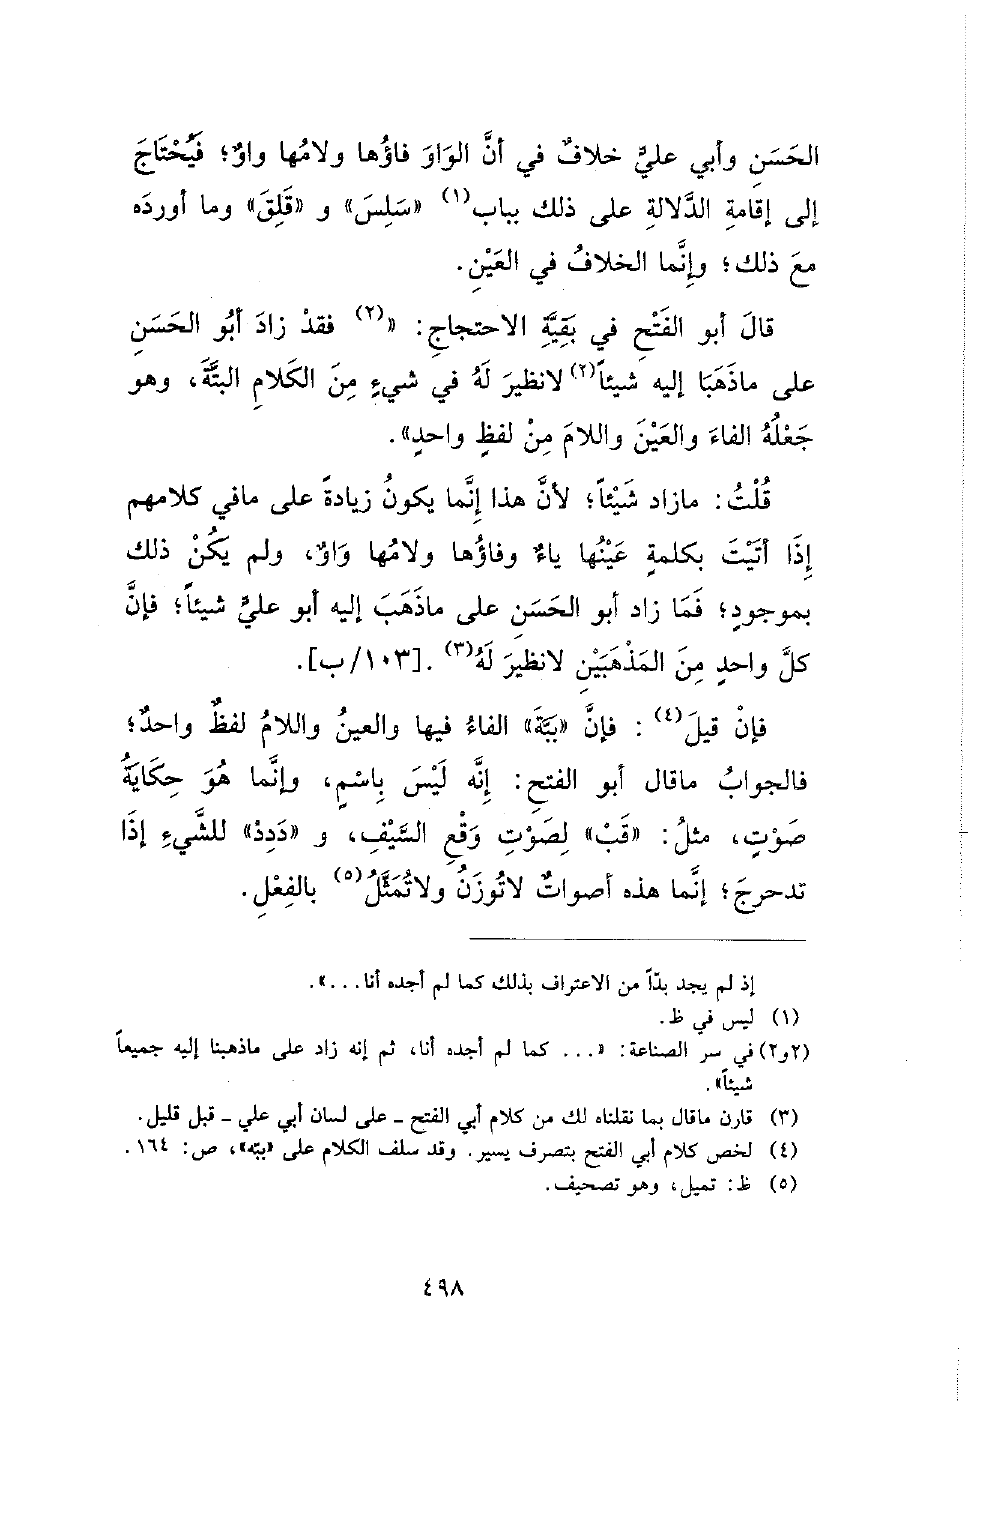 الحَسَنِ وأبي عليٍّ خلافٌ في أنَّ الوَاوَ فاؤُها ولامُها واوٌ؛ فَيُحْتَاجَ
إلى إقامةِ الدَّلالةِ على ذلك بباب(١) «سَلِسَ» و «قَلِقَ» وما أوردَه
معَ ذلك؛ وإنَّما الخلافُ في العَيْنِ.
قالَ أبو الفَتْحِ في بَقِيَّةِ الاحتجاجِ: «(٢) فقدْ زادَ أبُو الحَسَنِ
على ماذَهَبَا إليه شيئاً(٢) لانظيرَ لَهُ في شيءٍ مِنَ الكَلامِ البتَّةَ، وهو
جَعْلُهُ الفاءَ والعَيْنَ واللامَ مِنْ لفظٍ واحدٍ».
قُلْتُ: مازاد شَيْئاً؛ لأنَّ هذا إنَّما يكونُ زيادةً على مافي كلامهم
إذَا أتَيْتَ بكلمةٍ عَيْنُها ياءٌ وفاؤُها ولامُها وَاوٌ، ولم يَكُنْ ذلك
بموجودٍ؛ فَمَا زاد أبو الحَسَنِ على ماذَهَبَ إليه أبو عليٍّ شيئاً؛ فإنَّ
كلَّ واحدٍ مِنَ المَذْهَبَيْنِ لانظيرَ لَهُ(٣) .[١٠٣/ب].
فإنْ قيلَ(٤) : فإنَّ «بَبَّةَ» الفاءُ فيها والعينُ واللامُ لفظٌ واحدٌ؛
فالجوابُ ماقال أبو الفتحِ: إنَّه لَيْسَ بِاسْمٍ، وإنَّما هُوَ حِكَايَةُ
صَوْتٍ، مثلُ: «قَبْ» لِصَوْتِ وَقْعِ السَّيْفِ، و «دَدِدْ» للشَّيءِ إذَا
تدحرجَ؛ إنَّما هذه أصواتٌ لاتُوزَنُ ولاتُمَثَّلُ(٥) بالفِعْلِ.
إذ لم يجد بدّاً من الاعتراف بذلك كما لم أجده أنا...».
(١) ليس في ظ.
(٢و٢) في سر الصناعة: «... كما لم أجده أنا، ثم إنه زاد على ماذهبنا إليه جميعاً
شيئاً».
(٣) قارن ماقال بما نقلناه لك من كلام أبي الفتح ـ على لسان أبي علي ـ قبل قليل.
(٤) لخص كلام أبي الفتح بتصرف يسير. وقد سلف الكلام على «ببّه»، ص: ١٦٤.
(٥) ظ: تميل، وهو تصحيف.
٤٩٨